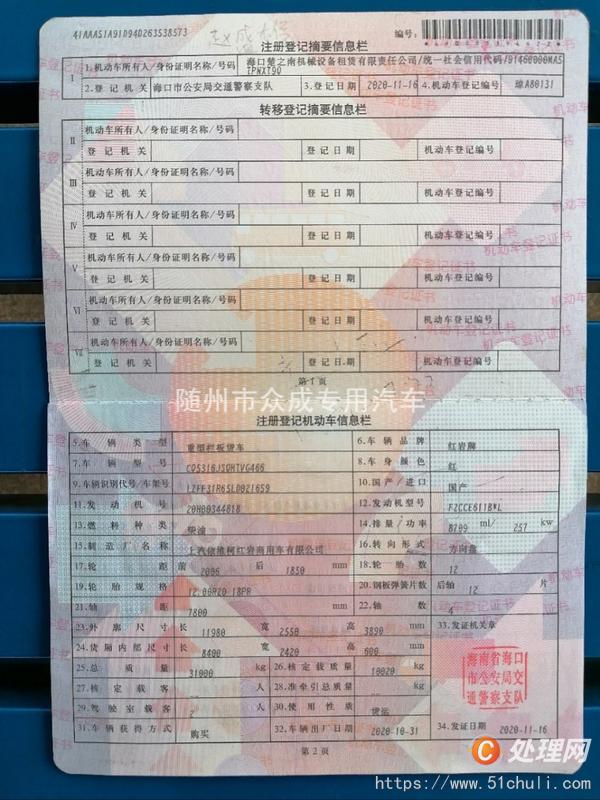 41AAAS1A91D94D263538573
编号:
注册登记摘要信息栏
I 1.机动车所有人/身份证明名称/号码 海口楚之南机械设备租赁有限责任公司/统一社会信用代码/91460000MA5TPNXT9Q
2.登记机关 海口市公安局交通警察支队 3.登记日期 2020-11-16 4.机动车登记编号 琼A80131
转移登记摘要信息栏
II 机动车所有人/身份证明名称/号码
登记机关 登记日期 机动车登记编号
III 机动车所有人/身份证明名称/号码
登记机关 登记日期 机动车登记编号
IV 机动车所有人/身份证明名称/号码
登记机关 登记日期 机动车登记编号
V 机动车所有人/身份证明名称/号码
登记机关 登记日期 机动车登记编号
VI 机动车所有人/身份证明名称/号码
登记机关 登记日期 机动车登记编号
VII 机动车所有人/身份证明名称/号码
登记机关 登记日期 机动车登记编号
第1页
随州市众成专用汽车
注册登记机动车信息栏
5.车辆类型 重型栏板货车 6.车辆品牌 红岩牌
7.车辆型号 CQ5316JSQHTVG466 8.车身颜色 红
9.车辆识别代号/车架号 LZFF31R65LD021659 10.国产/进口 国产
11.发动机号 20H00344818 12.发动机型号 F2CCE611B*L
13.燃料种类 柴油 14.排量/功率 8709 ml/ 257 kw
15.制造厂名称 上汽依维柯红岩商用车有限公司 16.转向形式 方向盘
17.轮距 前 2006 后 1850 mm 18.轮胎数 12
19.轮胎规格 12.00R20 18PR 20.钢板弹簧片数 后轴 12 片
21.轴距 7800 mm 22.轴数 4
23.外廓尺寸 长 11980 宽 2550 高 3890 mm 33.发证机关章
24.货厢内部尺寸 长 8400 宽 2420 高 600 mm
25.总质量 31000 kg 26.核定载质量 10020 kg
27.核定载客 人 28.准牵引总质量 kg
29.驾驶室载客 2 人 30.使用性质 货运
海南省海口
市公安局交
通警察支队
31.车辆获得方式 购买 32.车辆出厂日期 2020-10-31 34.发证日期 2020-11-16
第2页
C 处理网
https://www.51chuli.com/